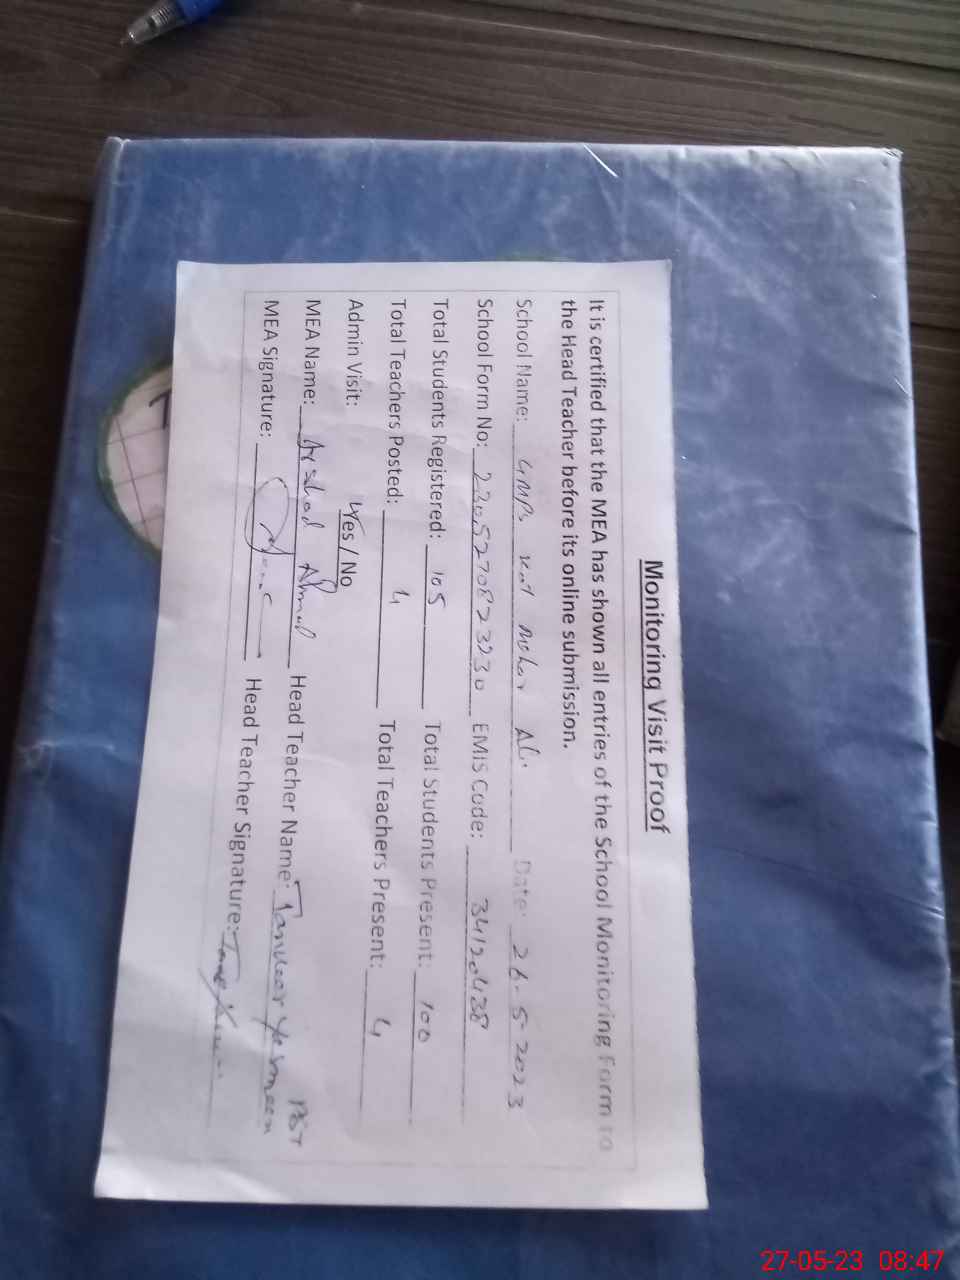 Monitoring Visit Proof
It is certified that the MEA has shown all entries of the School Monitoring Form to
the Head Teacher before its online submission.
School Name: GMPS Kot Meher Ali. Date: 26-5-2023
School Form No: 2305270823230 EMIS Code: 34120438
Total Students Registered: 105 Total Students Present: 100
Total Teachers Posted: 4 Total Teachers Present: 4
Admin Visit: Yes / No
MEA Name: Arshad Ahmad Head Teacher Name: Tanveer Yasmeen PST
MEA Signature: Head Teacher Signature:
27-05-23 08:47